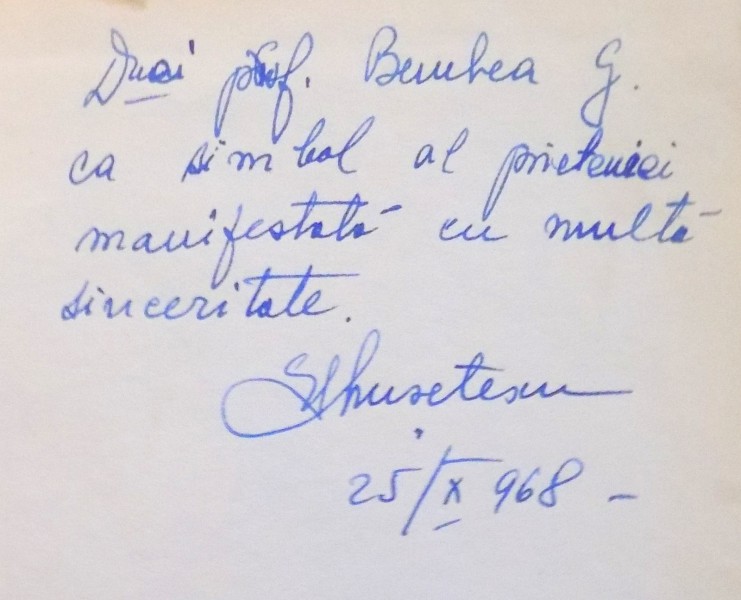 Dnei prof. Bembea G.
ca simbol al prieteniei
manifestată cu multă
sinceritate.
25/X 968 –